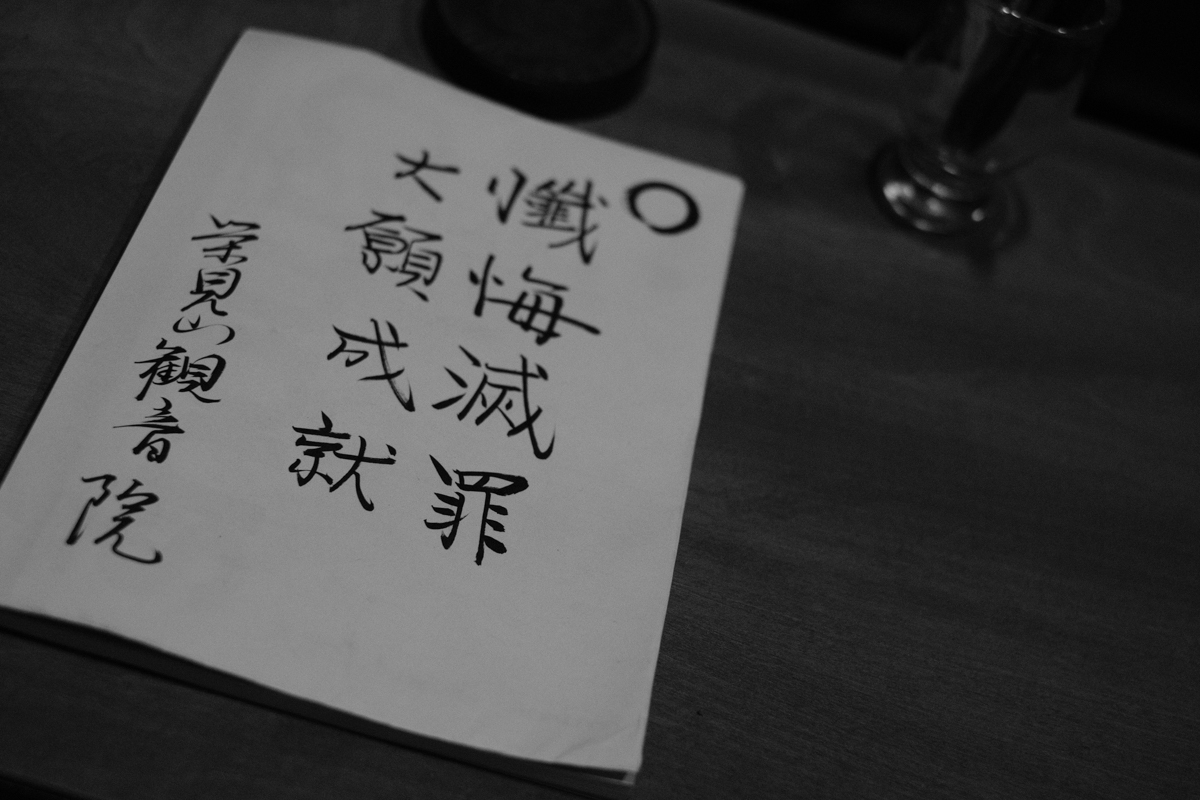 懺悔滅罪
大願成就
栄見山観音院